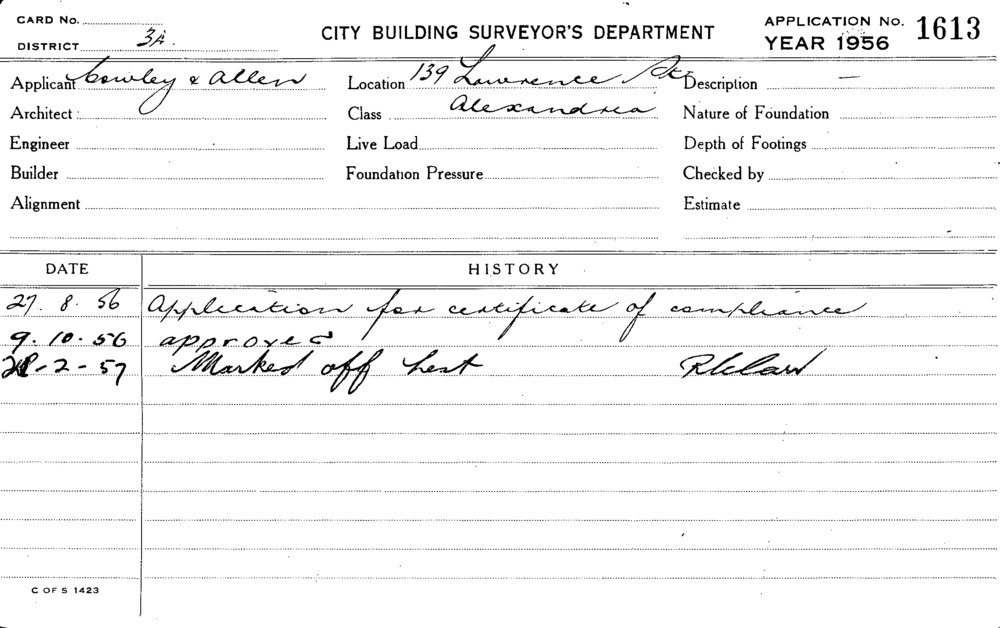 CARD No.
DISTRICT 3A.
CITY BUILDING SURVEYOR'S DEPARTMENT
APPLICATION No. 1613
YEAR 1956
Applicant Cowley & Allen
Location 139 Lawrence St.
Description —
Architect
Class Alexandria
Nature of Foundation
Engineer
Live Load
Depth of Footings
Builder
Foundation Pressure
Checked by
Alignment
Estimate
DATE HISTORY
27. 8. 56 Application for certificate of compliance
9. 10. 56 approved
-2-57 Marked off
C OF S 1423